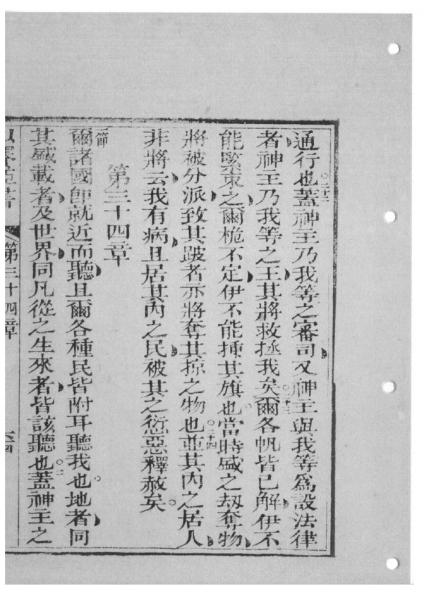 通行也蓋神主乃我等之審司又神主與我等爲設法律
者神主乃我等之王其將救拯我矣爾各帆皆已解伊不
能緊束之爾桅不定伊不能揷其旗也當時盛之刼奪物
將被分派致其跛者亦將奪其掠之物也並其內之居人
非將云我有病且居其內之民被其之愆惡釋赦矣
第三十四章
一節
爾諸國卽就近而聽且爾各種民皆附耳聽我也地者同
其盛載者及世界同凡從之生來者皆該聽也蓋神主之
第三十四章